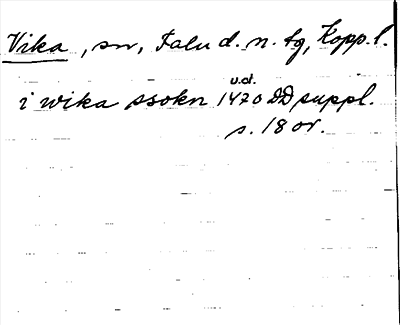 Vika, sn, Falu d. n. tg, Kopp. l.
u.d.
i wika ssokn 1470 DD suppl.
s. 18 or.